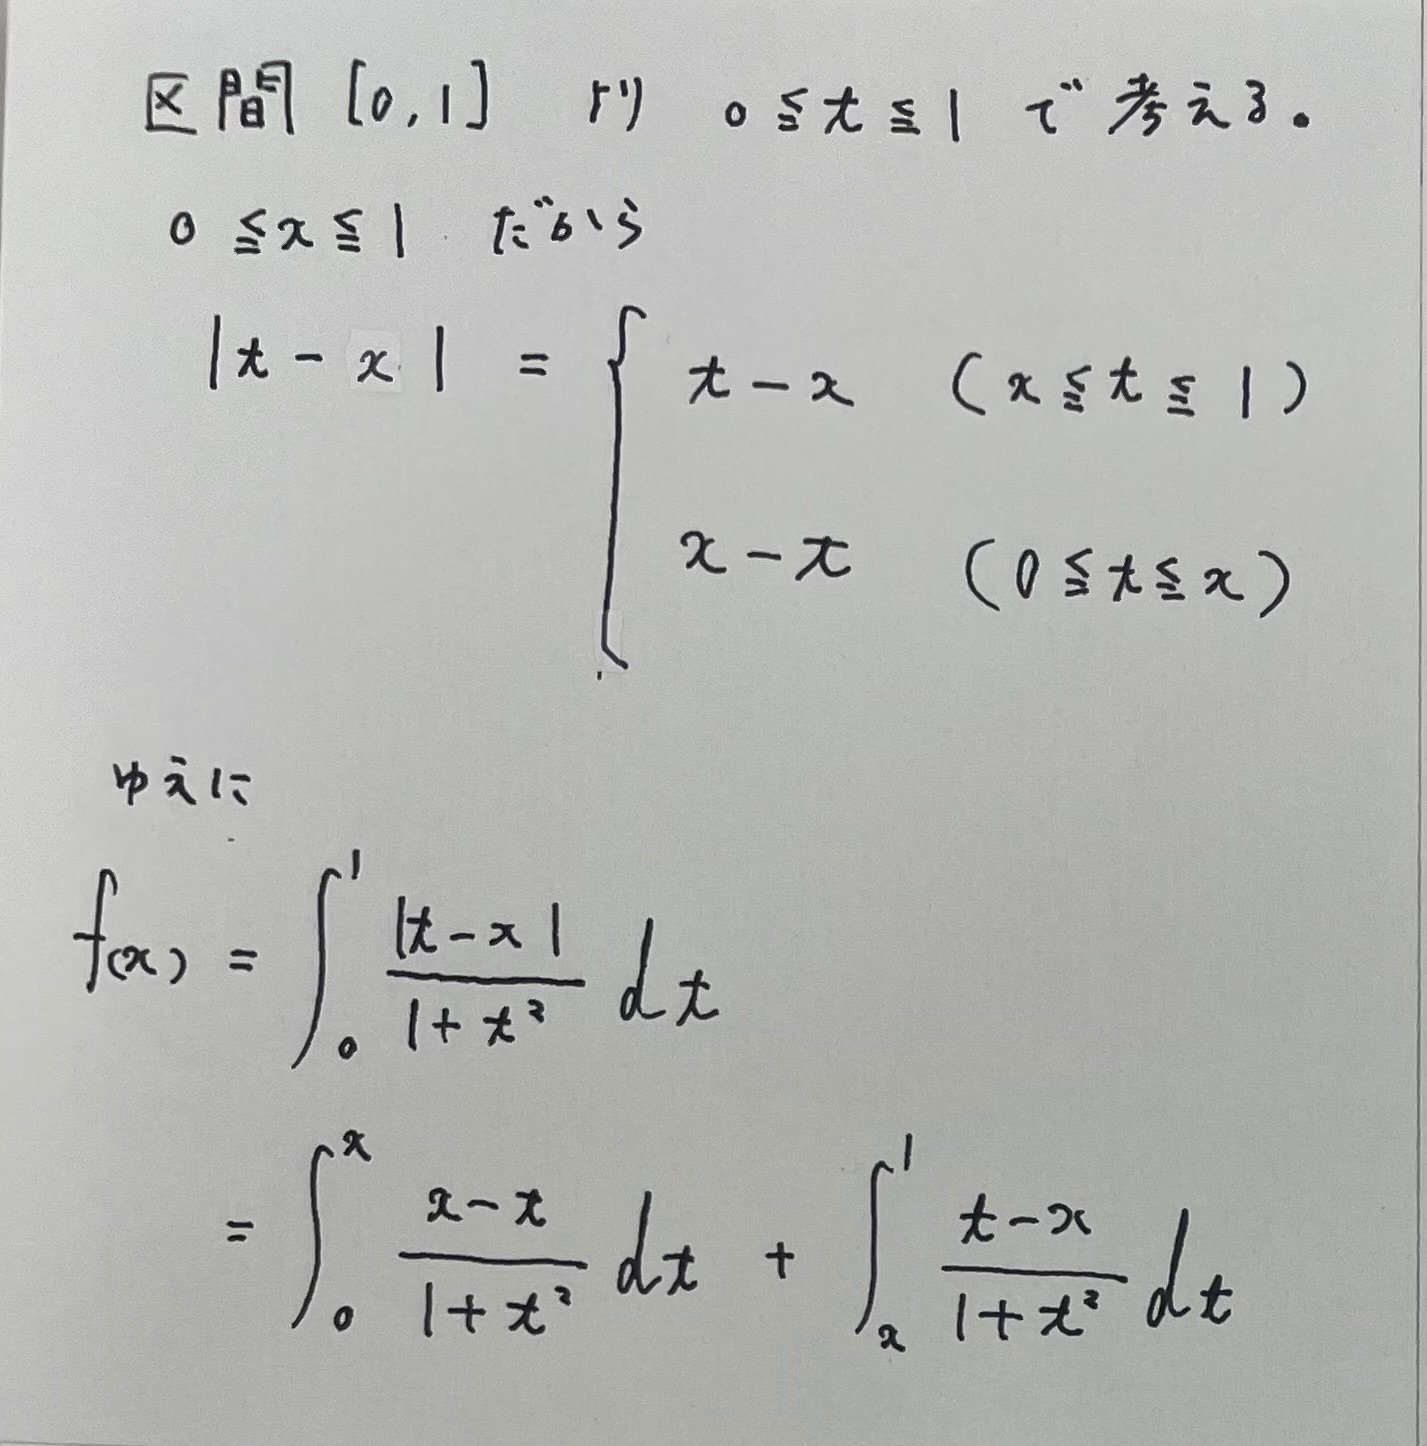 区間 [0,1] より 0≦t≦1 で考える。
0≦x≦1 だから
|t-x| = { t-x (x≦t≦1)
x-t (0≦t≦x)
ゆえに
f(x) = ∫₀¹ |t-x|/(1+t²) dt
= ∫₀ˣ (x-t)/(1+t²) dt + ∫ₓ¹ (t-x)/(1+t²) dt